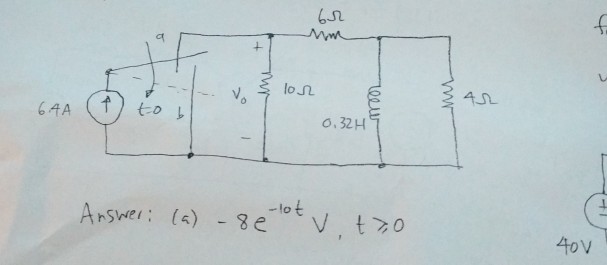 6Ω
a
+
6.4A
t=0
b
V₀
10Ω
0.32H
4Ω
−
Answer: (a) -8e^-10t V, t≥0
40V